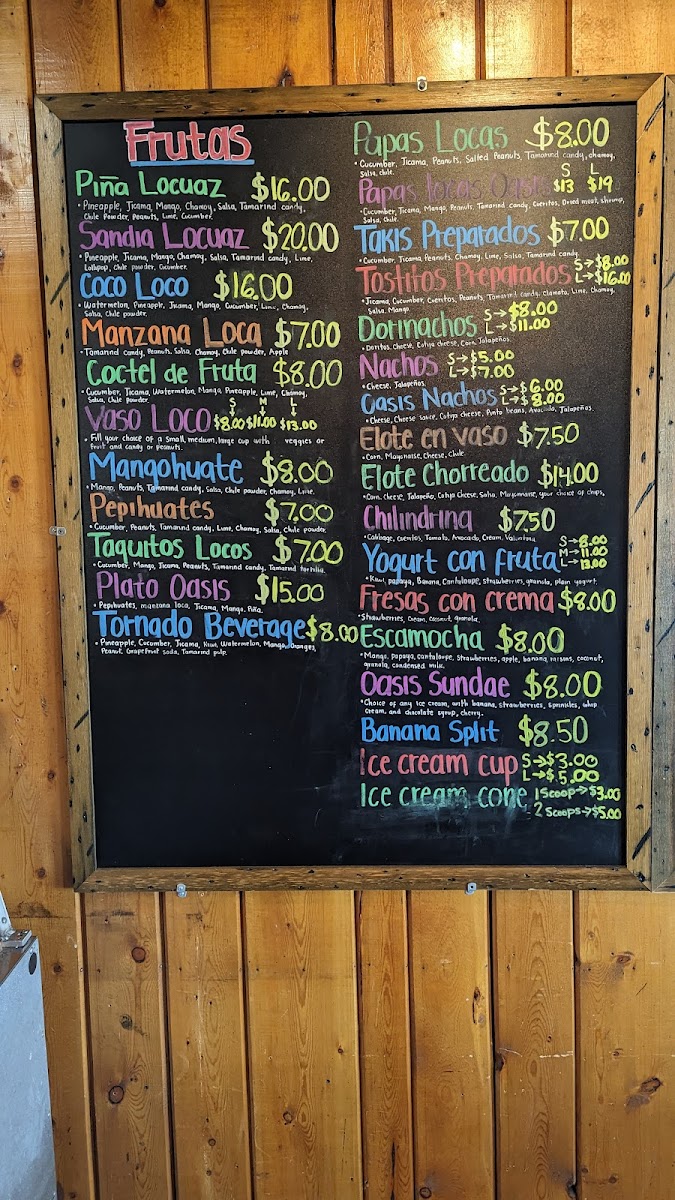 Frutas
Piña Locuaz $16.00
• Pineapple, Jicama, Mango, Chamoy, Salsa, Tamarind candy,
Chile Powder, Peanuts, Lime, Cucumber.
Sandia Locuaz $20.00
• Pineapple, Jicama, Mango, Chamoy, Salsa, Tamarind candy, Lime,
Lollipop, chile powder, Cucumber.
Coco Loco $16.00
• Watermelon, Pineapple, Jicama, Mango, Cucumber, Lime, Chamoy,
Salsa, Chile powder.
Manzana Loca $7.00
• Tamarind candy, Peanuts, Salsa, Chamoy, Chile powder, Apple
Coctel de Fruta $8.00
• Cucumber, Jicama, Watermelon, Mango, Pineapple, Lime, Chamoy,
Salsa, Chile powder.
S M L
Vaso Loco $8.00 $11.00 $13.00
• Fill your choice of a small, medium, large cup with veggies or
fruit and candy or peanuts.
Mangohuate $8.00
• Mango, Peanuts, Tamarind candy, Salsa, Chile powder, Chamoy, Lime.
Pepihuates $7.00
• Cucumber, Peanuts, Tamarind candy, Lime, Chamoy, Salsa, Chile powder
Taquitos Locos $7.00
• Cucumber, Mango, Jicama, Peanuts, Tamarind candy, Tamarind tortilla.
Plato Oasis $15.00
• Pepihuates, manzana loca, Jicama, Mango, Piña.
Tornado Beverage $8.00
• Pineapple, Cucumber, Jicama, Kiwi, Watermelon, Mango, Oranges,
Peanut, Grapefruit soda, Tamarind pulp.
Papas Locas $8.00
• Cucumber, Jicama, Peanuts, Salted Peanuts, Tamarind candy, chamoy,
Salsa, chile.
S L
Papas locas Oasis $13 $19
• Cucumber, Jicama, Mango, Peanuts, Tamarind candy, Cueritos, Dried meat, shrimp,
Salsa, Chile.
Takis Preparados $7.00
• Cucumber, Jicama, Peanuts, Chamoy, Lime, Salsa, Tamarind candy.
Tostitos Preparados S→$8.00
L→$16.00
• Jicama, Cucumber, Cueritos, Peanuts, Tamarind candy, clamato, Lime, Chamoy,
Salsa, Mango
Dorinachos S→$8.00
L→$11.00
• Doritos, Cheese, Cotija cheese, Corn, Jalapeños.
Nachos S→$5.00
L→$7.00
• Cheese, Jalapeños.
Oasis Nachos S→$6.00
L→$8.00
• Cheese, Cheese sauce, Cotija cheese, Pinto beans, Avocado, Jalapeños.
Elote en vaso $7.50
• Corn, Mayonaise, Cheese, Chile.
Elote Chorreado $14.00
• Corn, Cheese, Jalapeño, Cotija Cheese, Salsa, Mayonnaise, your choice of chips.
Chilindrina $7.50
• Cabbage, cueritos, Tomato, Avocado, Cream, Valentina
Yogurt con fruta S→8.00
M→11.00
L→13.00
• Kiwi, papaya, Banana, Cantaloupe, strawberries, granola, plain yogurt.
Fresas con crema $8.00
• Strawberries, Cream, coconut, granola.
Escamocha $8.00
• Mango, papaya, cantaloupe, strawberries, apple, banana, raisins, coconut,
granola, condensed milk.
Oasis Sundae $8.00
• Choice of any ice cream, with banana, strawberries, sprinkles, whip
cream, and chocolate syrup, cherry.
Banana Split $8.50
Ice cream cup S→$3.00
L→$5.00
Ice cream cone 1 Scoop→$3.00
2 Scoops→$5.00